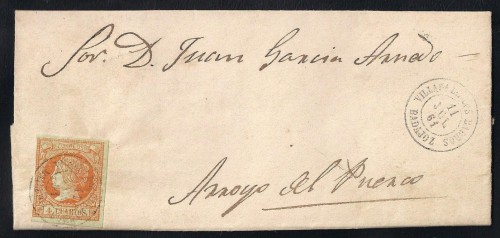 Sor. D. Juan Garcia Amado
VILLAFRANCA DE LOS BARROS
11
JUL
61
BADAJOZ
Arroyo del Puerco
4 CUARTOS